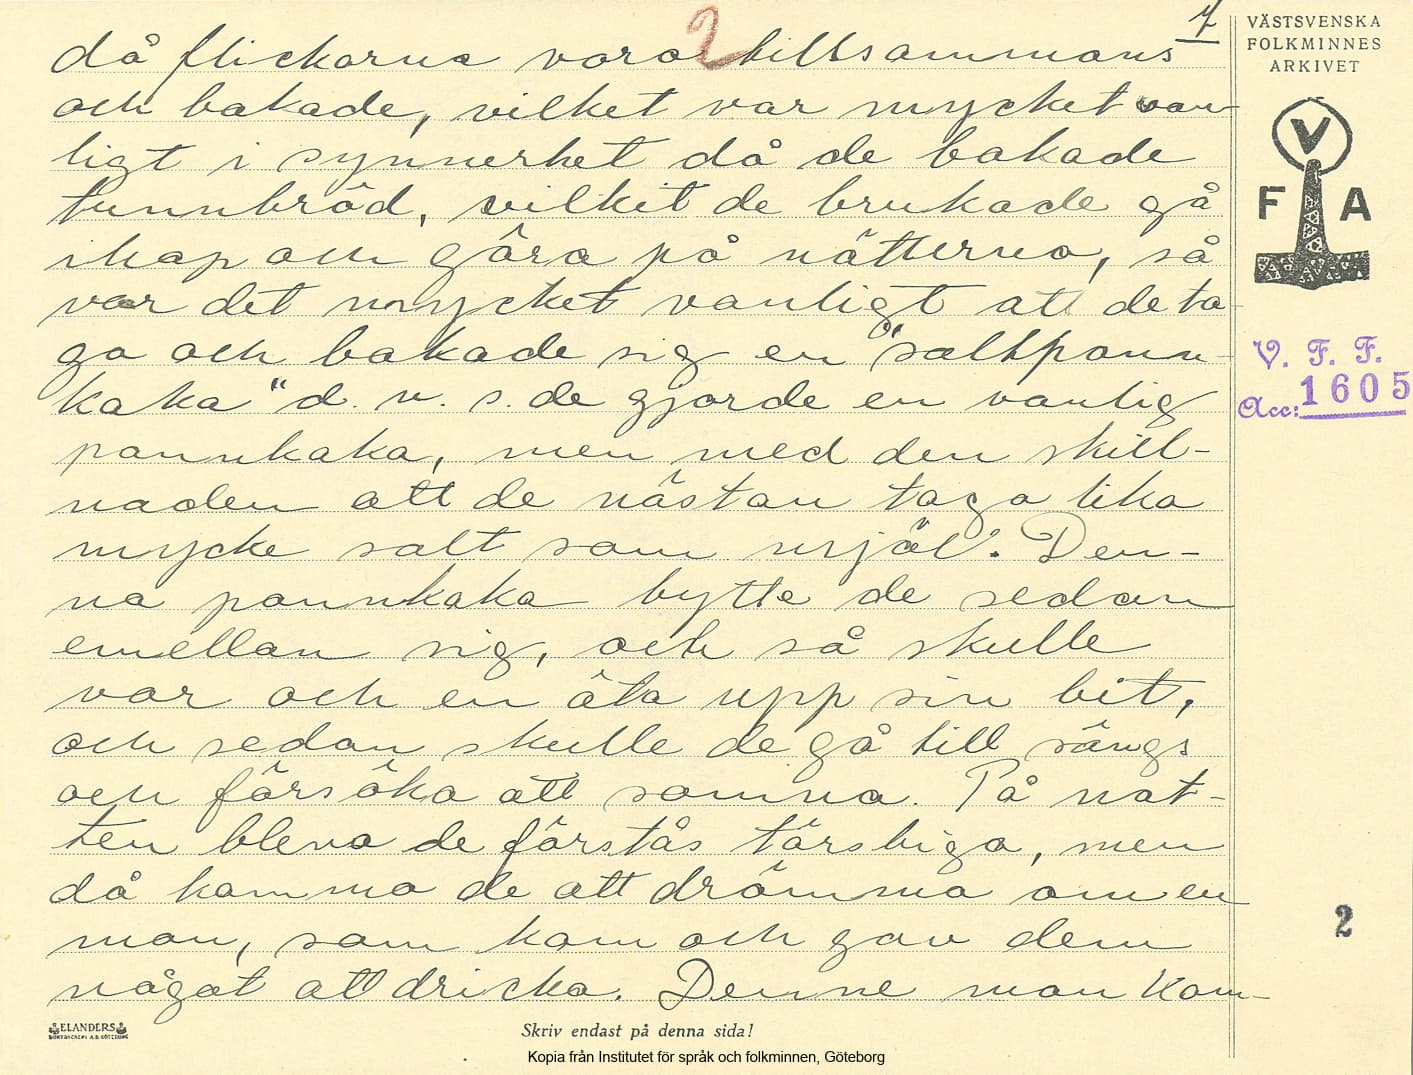 7
2
då flickorna voro tillsammans
och bakade, vilket var mycket van-
ligt i synnerhet då de bakade
tunnbröd, vilkit de brukade gå
ihop och göra på nätterna, så
var det mycket vanligt att de ta-
ga och bakade sig en "saltpann-
kaka" d. v. s. de gjorde en vanlig
pannkaka, men med den skill-
naden att de nästan taga lika
mycke salt som mjöl. Den-
na pannkaka bytte de sedan
emellan sig, och så skulle
var och en äta upp sin bit,
och sedan skulle de gå till sängs
och försöka att somna. På nat-
ten bleva de förstås törstiga, men
då kommo de att drömma om en
man, som kom och gav dem
något att dricka. Denne man kom-
VÄSTSVENSKA
FOLKMINNES
ARKIVET
V
F A
V. F. F.
Acc: 1605
2
ELANDERS
BOKTRYCKERI A.B. GÖTEBORG
Skriv endast på denna sida!
Kopia från Institutet för språk och folkminnen, Göteborg